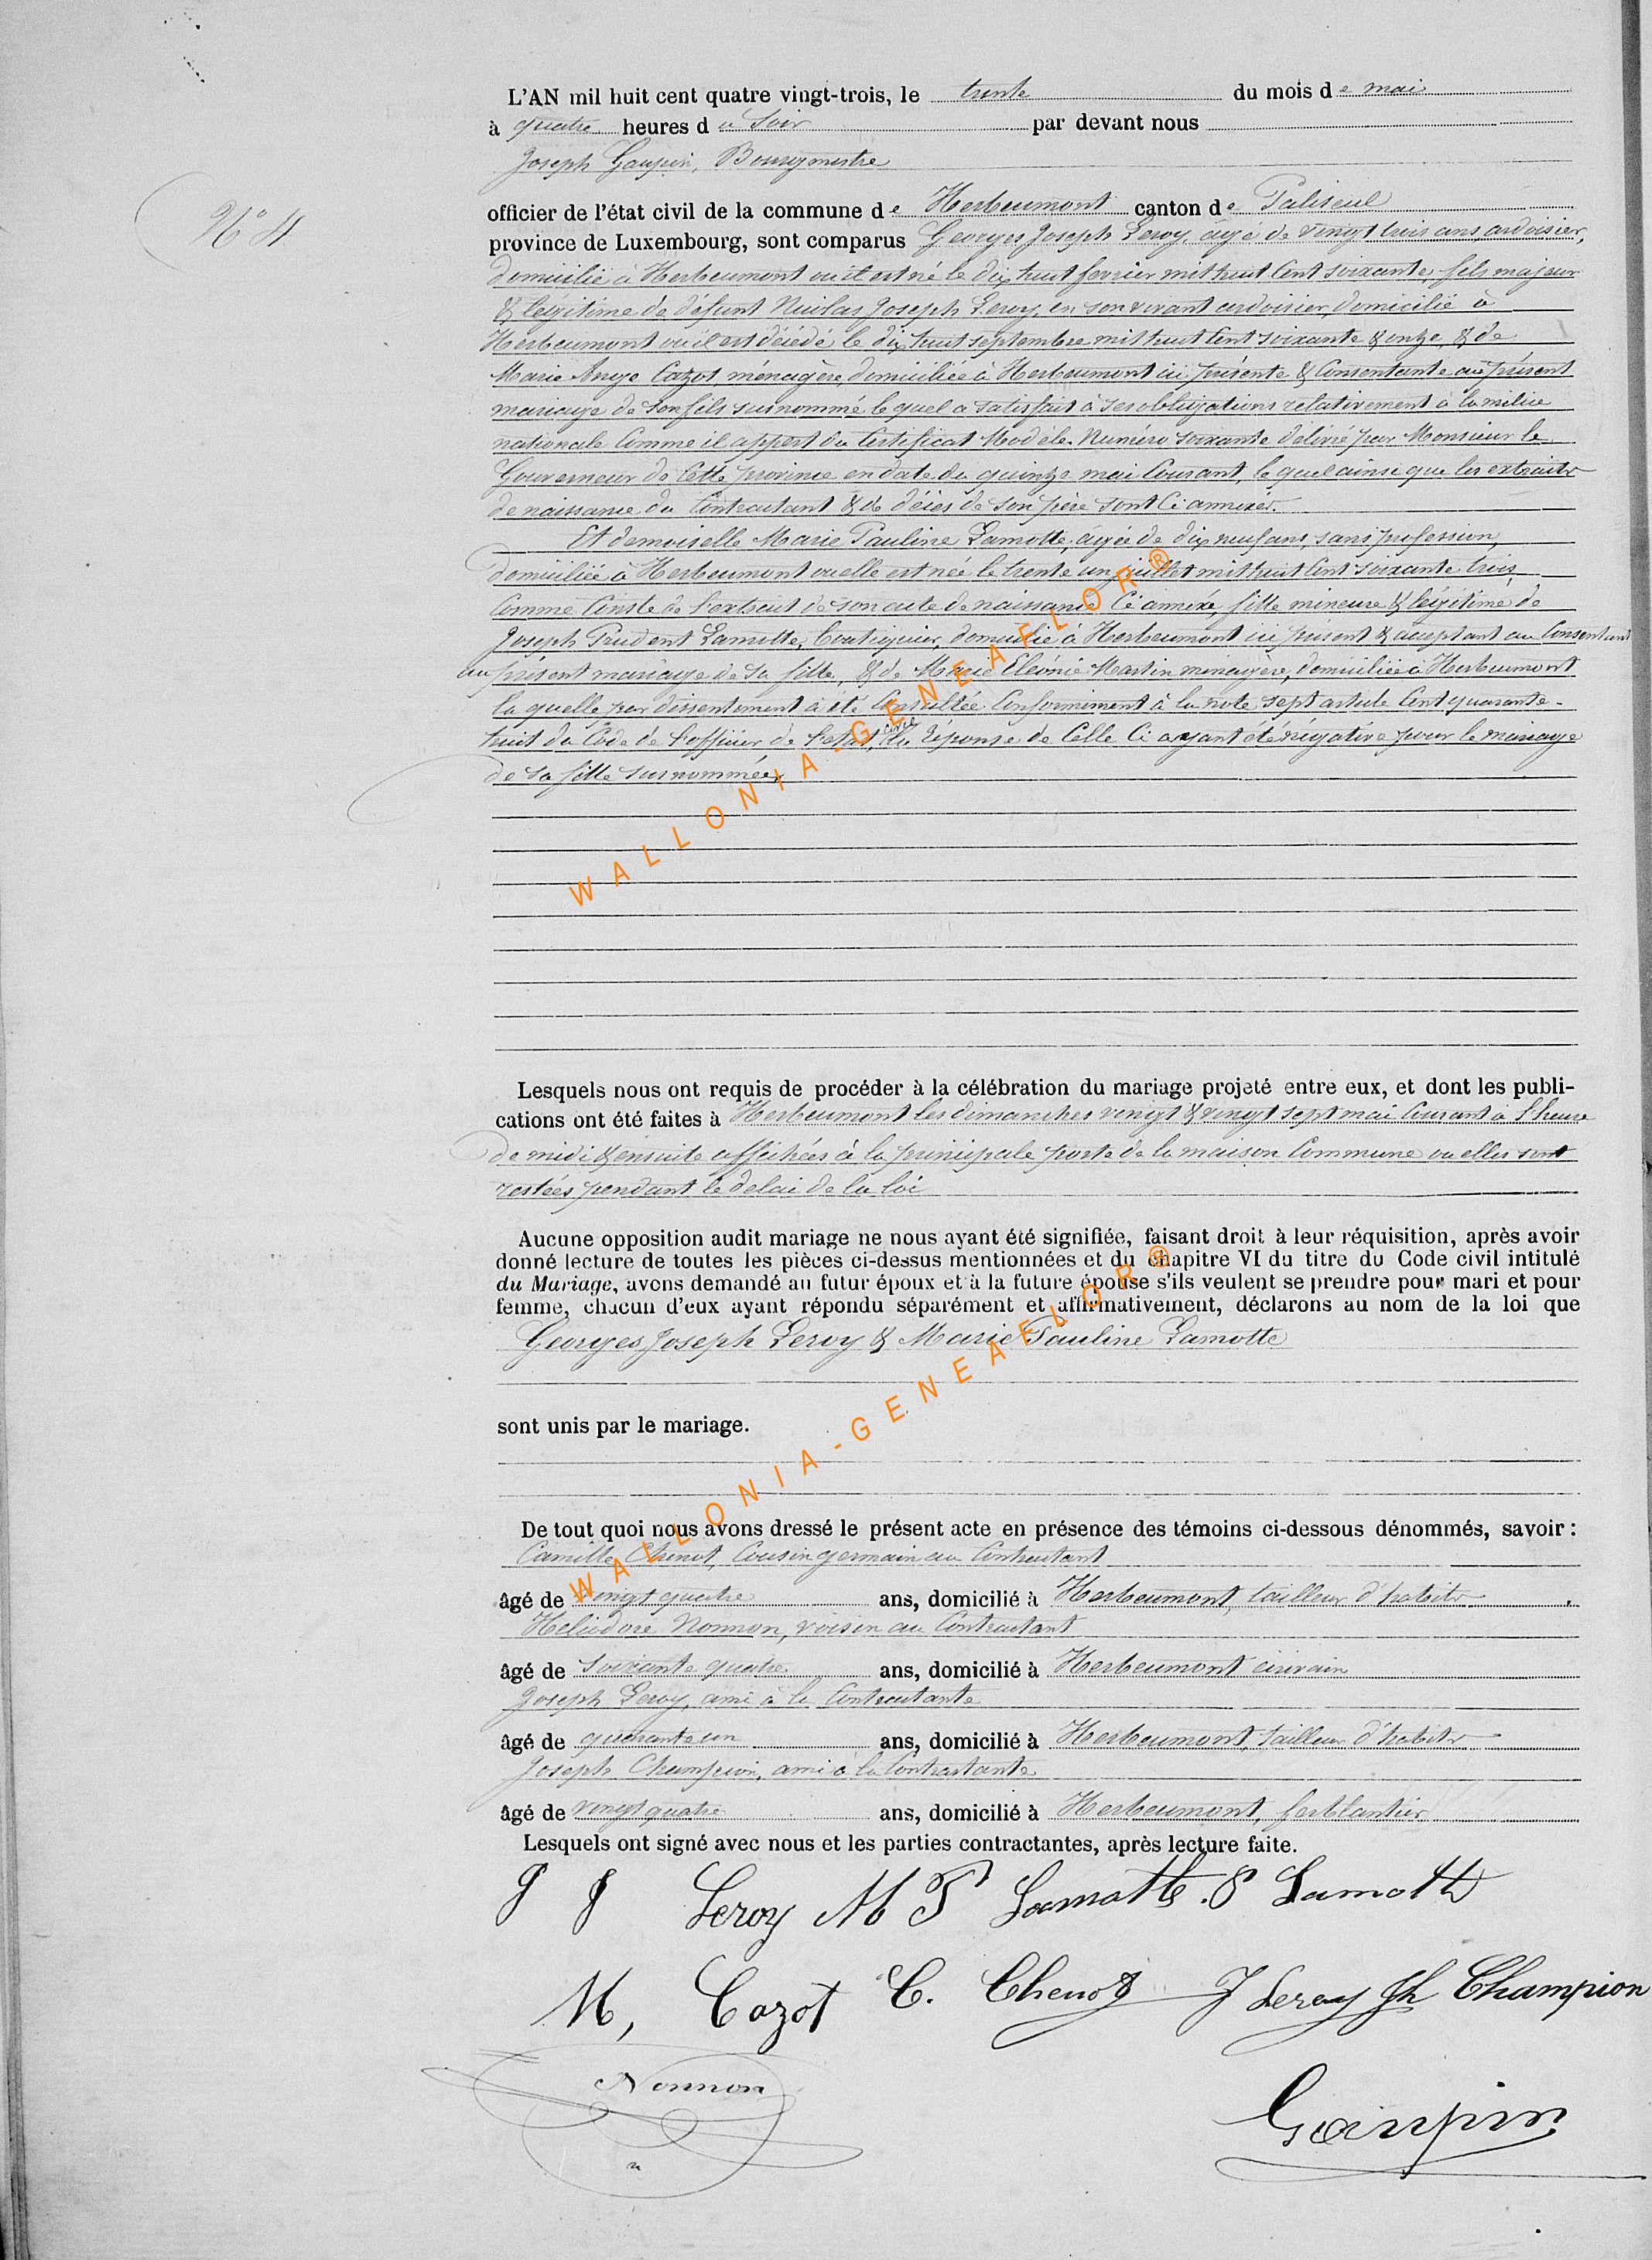 L'AN mil huit cent quatre vingt-trois, le trente du mois de mai
à quatre heures du Soir par devant nous
Joseph Gaupin, Bourgmestre
N° 4
officier de l'état civil de la commune de Herbeumont canton de Paliseul
province de Luxembourg, sont comparus Georges Joseph Leroy, âgé de vingt trois ans, ardoisier,
domicilié à Herbeumont ou il est né le dix huit fevrier mil huit Cent soixante, fils majeur
& légitime de défunt Nicolas Joseph Leroy, en son vivant ardoisier, domicilié à
Herbeumont où il est décédé le dix huit septembre mil huit Cent soixante & onze, & de
Marie Ange Cazot, ménagère domiciliée à Herbeumont ici présente & Consentante au présent
mariage de son fils susnommé le quel a satisfait à ses obligations relativement à la milice
nationale Comme il appert du Certificat Modèle Numéro soixante délivré par Monsieur le
Gouverneur de Cette province en date du quinze mai Courant, le quel ainsi que les extraits
de naissance du Contractant & de décès de son père sont Ci annexés.
Et demoiselle Marie Pauline Lamotte, âgée de dix neuf ans, sans profession,
domiciliée à Herbeumont ou elle est née le trente un juillet mil huit Cent soixante trois,
Comme Conste de l'extrait de son acte de naissance Ci annexé, fille mineure & légitime de
Joseph Prudent Lamotte, boutiquier, domicilié à Herbeumont ici présent & acceptant au Consentant
au présent mariage de Sa fille, & de Marie Eléonie Martin ménagère, domiciliée à Herbeumont
la quelle par dissentement à été Consultée Conformément à la note sept article Cent quarante-
huit du Code de l'officier de l'etat civil, la réponse de Celle Ci ayant été négative pour le mariage
de Sa fille susnommée.
WALLONIA-GENEAFLOR®
Lesquels nous ont requis de procéder à la célébration du mariage projeté entre eux, et dont les publi-
cations ont été faites à Herbeumont les dimanches vingt & vingt sept mai Courant à l'heure
de midi & ensuite affichées à la principale porte de la maison Commune ou elles sont
restées pendant le delai de la loi
Aucune opposition audit mariage ne nous ayant été signifiée, faisant droit à leur réquisition, après avoir
donné lecture de toutes les pièces ci-dessus mentionnées et du chapitre VI du titre du Code civil intitulé
du Mariage, avons demandé au futur époux et à la future épouse s'ils veulent se prendre pour mari et pour
femme, chacun d'eux ayant répondu séparément et affirmativement, déclarons au nom de la loi que
Georges Joseph Leroy & Marie Pauline Lamotte
sont unis par le mariage.
WALLONIA-GENEAFLOR®
De tout quoi nous avons dressé le présent acte en présence des témoins ci-dessous dénommés, savoir :
Camille Chenot, Cousin germain au Contractant
âgé de vingt quatre ans, domicilié à Herbeumont, tailleur d'habits.
Héliodore Nonnon, voisin au Contractant
âgé de soixante quatre ans, domicilié à Herbeumont écrivain
Joseph Leroy, ami à la Contractante
âgé de quarante un ans, domicilié à Herbeumont, tailleur d'habits
Joseph Champion, ami à la Contractante
âgé de vingt quatre ans, domicilié à Herbeumont, ferblantier
Lesquels ont signé avec nous et les parties contractantes, après lecture faite.
G J Leroy M P Lamotte. P Lamotte
M, Cazot C. Chenot J Leroy Jh Champion
Nonnon Gaupin